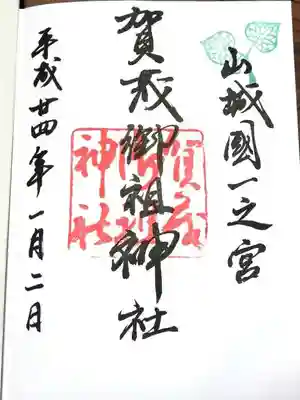 山城國一之宮
賀茂御祖神社
平成廿四年一月二日
賀茂
御祖
神社